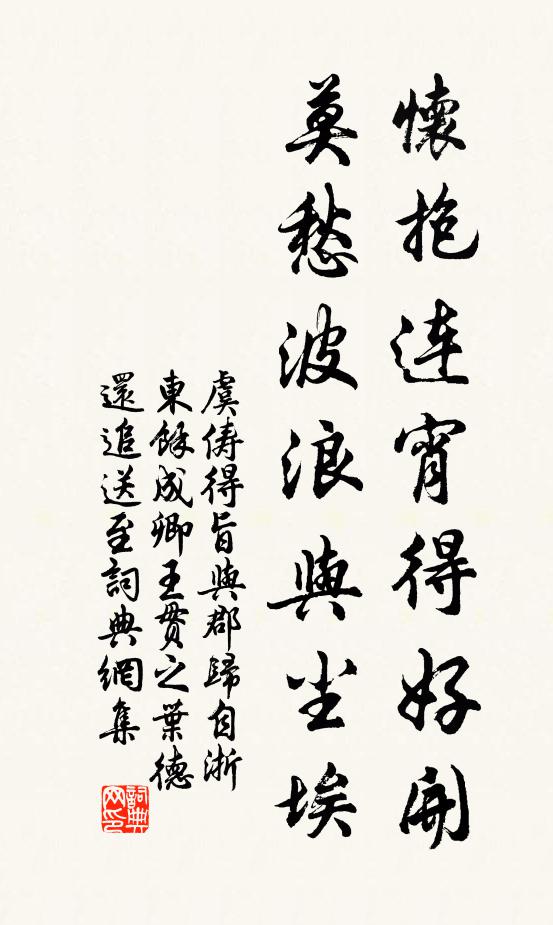 懷抱連宵得好開
莫愁波浪與尘埃
虞儔得旨與郡歸自浙
東餘成卿王貫之葉德
還追送至詞典網集
詞典网印